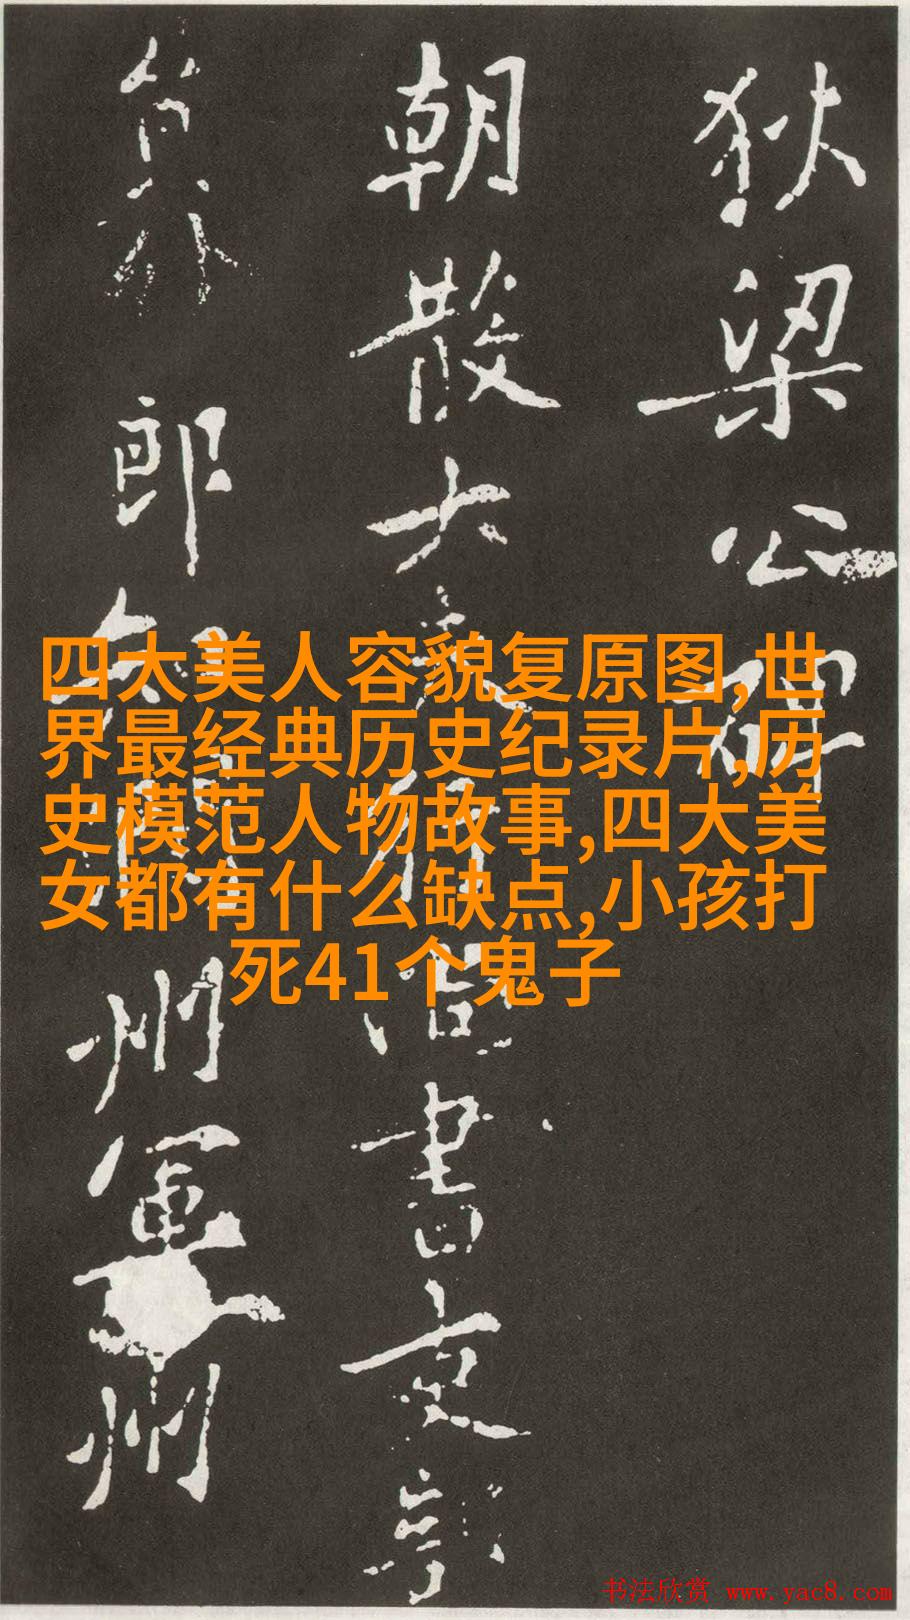 狄梁公碑
朝散大夫行尚書吏部
員外郎知潤州軍州
四大美人容貌复原图,世
界最经典历史纪录片,历
史模范人物故事,四大美
女都有什么缺点,小孩打
死41个鬼子
书法欣赏 www.yac8.com